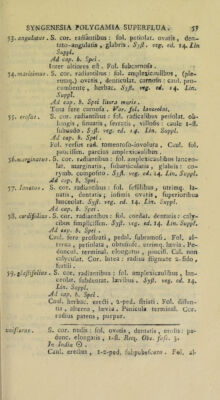 SYNGENESIA POLYGAMIA SUPERFLUA. 57
53. angulatus. S. cor. radiantibus: fol. petiolat. ovatis, den-
tato-angulatis, glabris. Syst. veg. ed. 14. Lin
Suppl.
Ad cap. b. Spei.
Inter altiores est. Fol. subcarnosa.
54. maritimus. S. cor. radiantibus: fol. amplexicaulibus, (ple-
rumq.) ovatis, denticulat. carnosis: caul. pro-
cumbente, herbac. Syst. veg. ed. 14. Lin.
Suppl.
Ad cap. b. Spei litora maris.
Tota fere carnosa. Var. fol. lanceolat.
55. erosus. S. cor. radiantibus: fol. radicalibus petiolat. ob-
longis, sinuatis, serratis, villosis: caule 1-fl.
subnudo. Syst. veg. ed. 14. Lin. Suppl.
Ad cap. b. Spei.
Fol. versus rad. tomentoso-involuta. Caul. fol.
paucissim. parvius amplexicaulibus.
56. marginatus. S. cor. radiantibus: fol. amplexicaulibus lanceo-
lat. marginatis, subarticulatis, glabris: co-
rymb. composito. Syst. veg. ed. 14. Lin. Suppl.
Ad cap. b. Spei.
57. lanatus. S. cor. radiantibus: fol. sessilibus, utrinq. la-
natis, dentatis; infimis ovatis, superioribus
lanceolat. Syst. veg. ed. 14. Lin. Suppl.
Ad cap. b. Spei.
58. cordifolius. S. cor. radiantibus: fol. cordat. dentatis: caly-
cibus simplicissim. Syst. veg. ed. 14. Lin. Suppl.
Ad cap. b. Spei.
Caul. fere prostrati, pedal. subramosi. Fol. al-
terna, petiolata, obtusiuse. utrinq. laevia. Pe-
duncul. terminal. elongatus, paucifl. Cal. non
calyculat. Cor. lutea: radius stigmate 2-fido,
fertili.
59. glastifolius. S. cor. radiantibus: fol. amplexicaulibus, lan-
ceolat. subdentat. laevibus. Syst. veg. ed. 14.
Lin. Suppl.
Ad cap. b. Spei.
Caul. herbac. erecti, 2-ped. striati. Fol. distan-
tia, alterna, laevia. Panicula terminal. Cor.
radius patens, purpur.
uniflorus. S. cor. nudis: fol. ovatis, dentatis, erosis: pe-
dunc. elongatis, 1-fl. Req. Obs. fasc. 5.
In India ☉.
Caul. erectus, 1-2-ped. subpubescens. Fol. al-